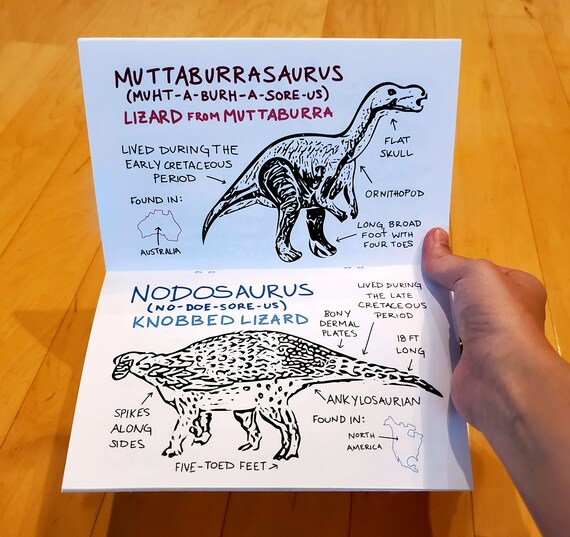 MUTTABURRASAURUS
(MUHT-A-BURH-A-SORE-US)
LIZARD FROM MUTTABURRA
LIVED DURING THE
EARLY CRETACEOUS
PERIOD
FOUND IN:
AUSTRALIA
FLAT
SKULL
ORNITHOPOD
LONG, BROAD
FOOT WITH
FOUR TOES
NODOSAURUS
(NO-DOE-SORE-US)
KNOBBED LIZARD
BONY
DERMAL
PLATES
LIVED DURING
THE LATE
CRETACEOUS
PERIOD
18 FT
LONG
SPIKES
ALONG
SIDES
FIVE-TOED FEET
ANKYLOSAURIAN
FOUND IN:
NORTH
AMERICA